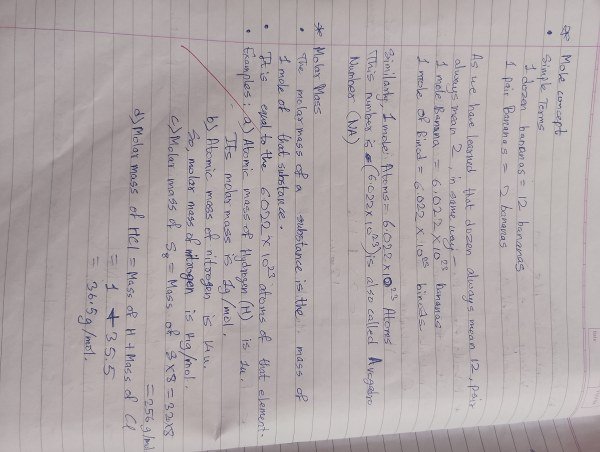 Mole concept
• Simple Terms
1 dozen bananas = 12 bananas
1 pair Bananas = 2 bananas
As we have learned that dozen always mean 12, pair
always mean 2, in same way -
1 mole Banana = 6.022 X 10²³ bananas
1 mole of Bined = 6.022 X 10²³ bineds.
Similarly, 1 mole Atoms = 6.022 X 10²³ Atoms
(This number is (6.022 X 10²³) is also called Avogadro
Number (NA)
Molar Mass
• The molar mass of a substance is the mass of
1 mole of that substance.
• It is equal to the 6.022 X 10²³ atoms of that element.
• Examples: a) Atomic mass of Hydrogen (H) is 1u.
Its molar mass is 1g/mol.
b) Atomic mass of nitrogen is 14u.
So, molar mass of nitrogen is 14g/mol.
c) Molar mass of S₈ = Mass of 8 X 8 = 32 X 8
= 256 g/mol
d) Molar mass of HCl = Mass of H + Mass of Cl
= 1 + 35.5
= 36.5 g/mol.